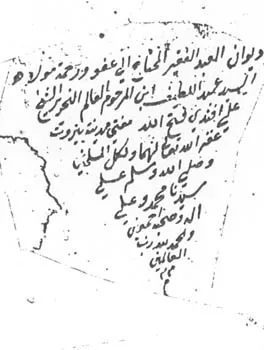 ديوان العبد الفقير المحتاج الى عفو ورحمة مولاه
السيد عبد اللطيف ابن المرحوم العالم النحرير الشيخ
علي افندي فتح الله مفتي مدينة بيروت
غفر الله تعالى لهما ولكل المسلمين
وصلى الله وسلم على
سيدنا محمد وعلى
اله وصحبه اجمعين
والحمد لله رب
العالمين
م م